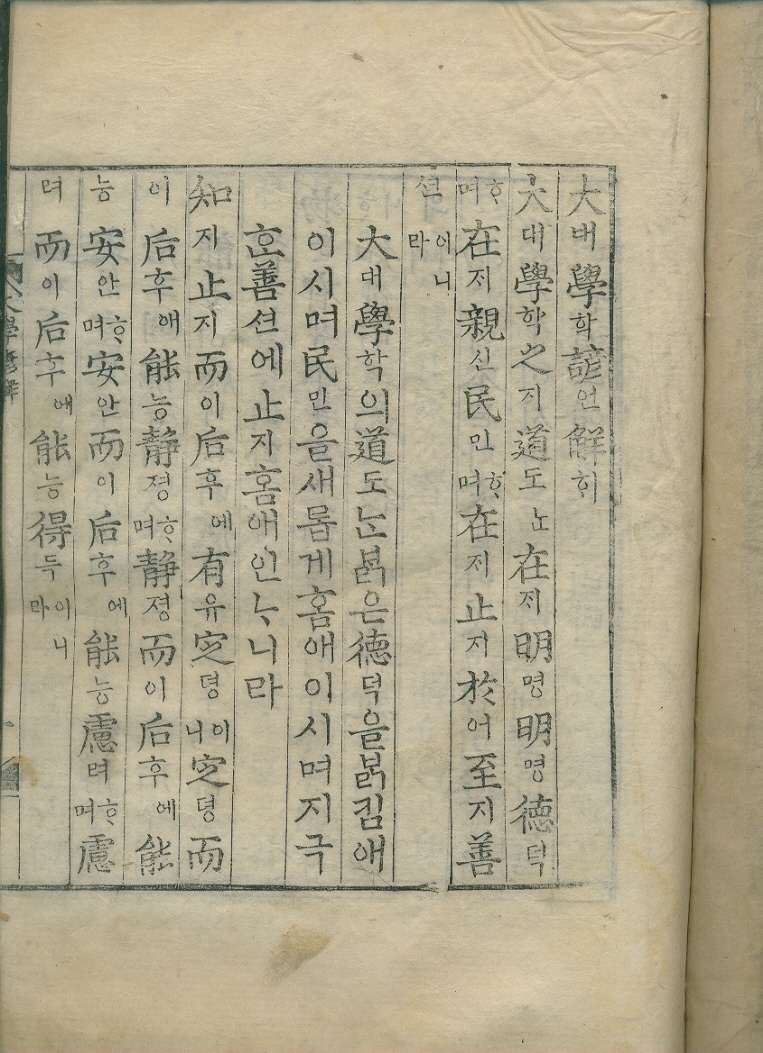 大대學학諺언解ᄒᆡ
大대學학之지道도ᄂᆞᆫ在ᄌᆡ明명明명德덕
ᄒᆞ며在ᄌᆡ親신民민ᄒᆞ며在ᄌᆡ止지於어至지善
션이니라
大대學학의道도ᄂᆞᆫᄇᆞᆰ은德덕을ᄇᆞᆰ김애
이시며民민을새롭게홈애이시며지극
ᄒᆞᆫ善션에止지홈애인ᄂᆞ니라
知지止지而이后후에有유定뎡이니定뎡而
이后후애能능静졍ᄒᆞ며静졍而이后후에能
능安안ᄒᆞ며安안而이后후에能능慮려ᄒᆞ며慮
려而이后후애能능得득이니라